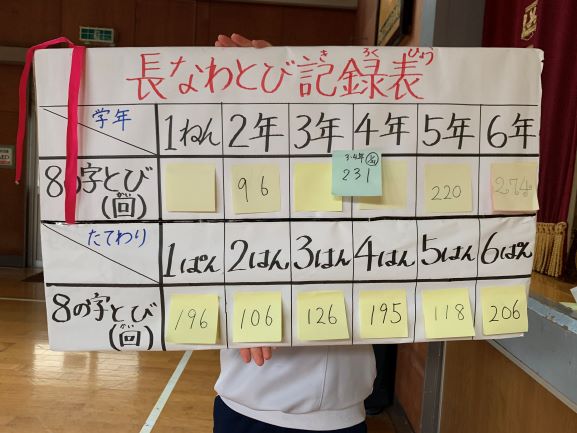 長なわとび記録表
きろくひょう
学年 1ねん 2年 3年 4年 5年 6年
8の字とび(回) 96 220 274
かい
3・4年
231
たてわり 1ぱん 2はん 3はん 4はん 5はん 6ぱん
8の字とび(回) 196 106 126 195 118 206
かい